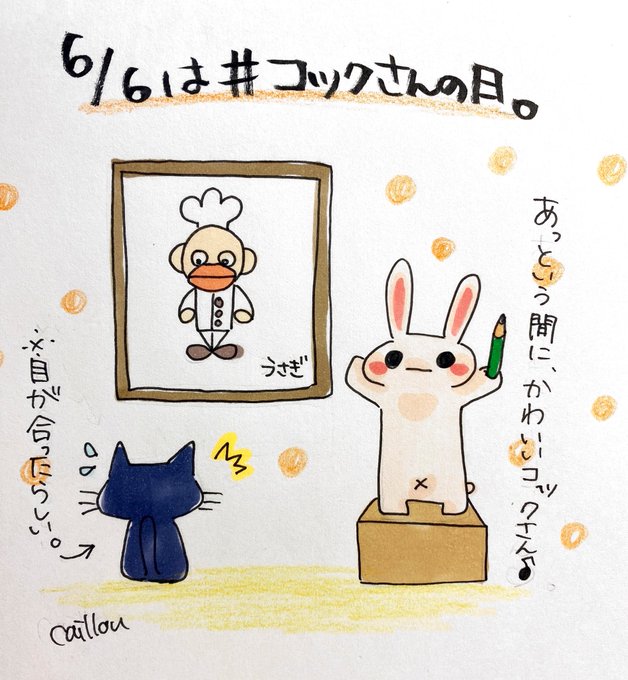 6/6は#コックさんの日。
あっという間に、かわいいコックさん♪
うさぎ
※目が合ったらしい。
caillou